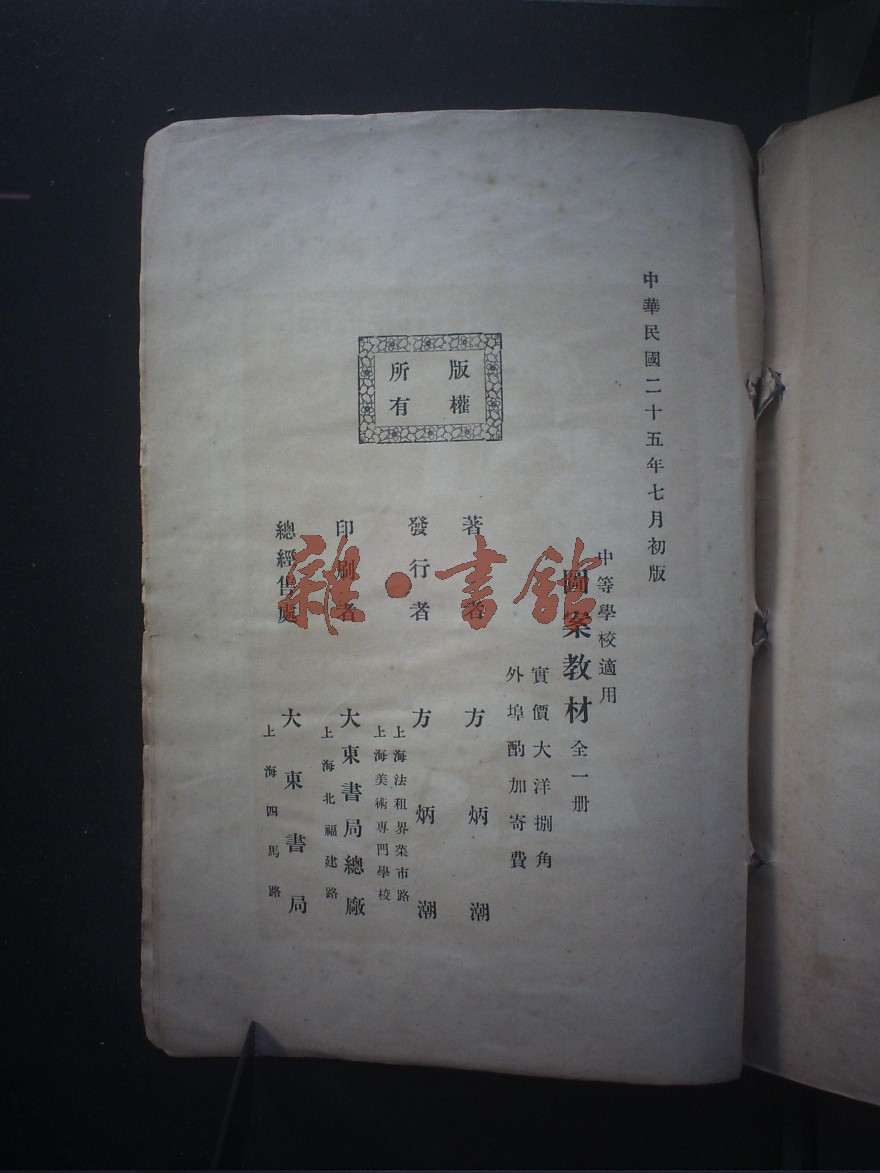 中華民國二十五年七月初版
中等學校適用
圖案教材 全一册
實價大洋捌角
外埠酌加寄費
著者 方炳潮
發行者 方炳潮
上海法租界菜市路
上海美術專門學校
印刷者 大東書局總廠
上海北福建路
總經售處 大東書局
上海四馬路
版權
所有
雜·書館